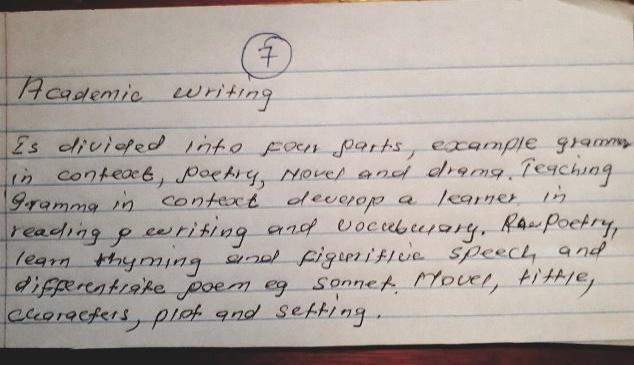 7
Academic writing
Is divided into four parts, example gramma
in context, poetry, Novel and drama. Teaching
gramma in context develop a learner in
reading & writing and vocabulary. Poetry,
learn rhyming and figuritive speech and
differentiate poem eg sonnet. Novel, tittle,
characters, plot and setting.